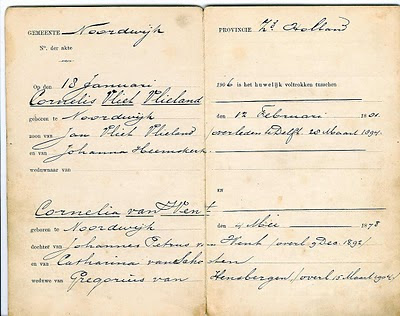 GEMEENTE Noordwijk PROVINCIE Zd Holland
No. der akte
Op den 13 Januari 1906 is het huwelijk voltrokken tusschen
Cornelis Vliet Vlieland
geboren te Noordwijk den 12 Februari 18
zoon van Jan Vliet Vlieland /overleden te Delft 20 Maart 1894
en van Johanna Heemskerk
weduwnaar van
Cornelia van Went en
geboren te Noordwijk den Mei 1878
dochter van Johannes Petrus van Went /overl 9 Dec. 1892/
en van Catharina van Schoten
weduwe van Gregorius van Hensbergen /overl 15 Maart 1904/